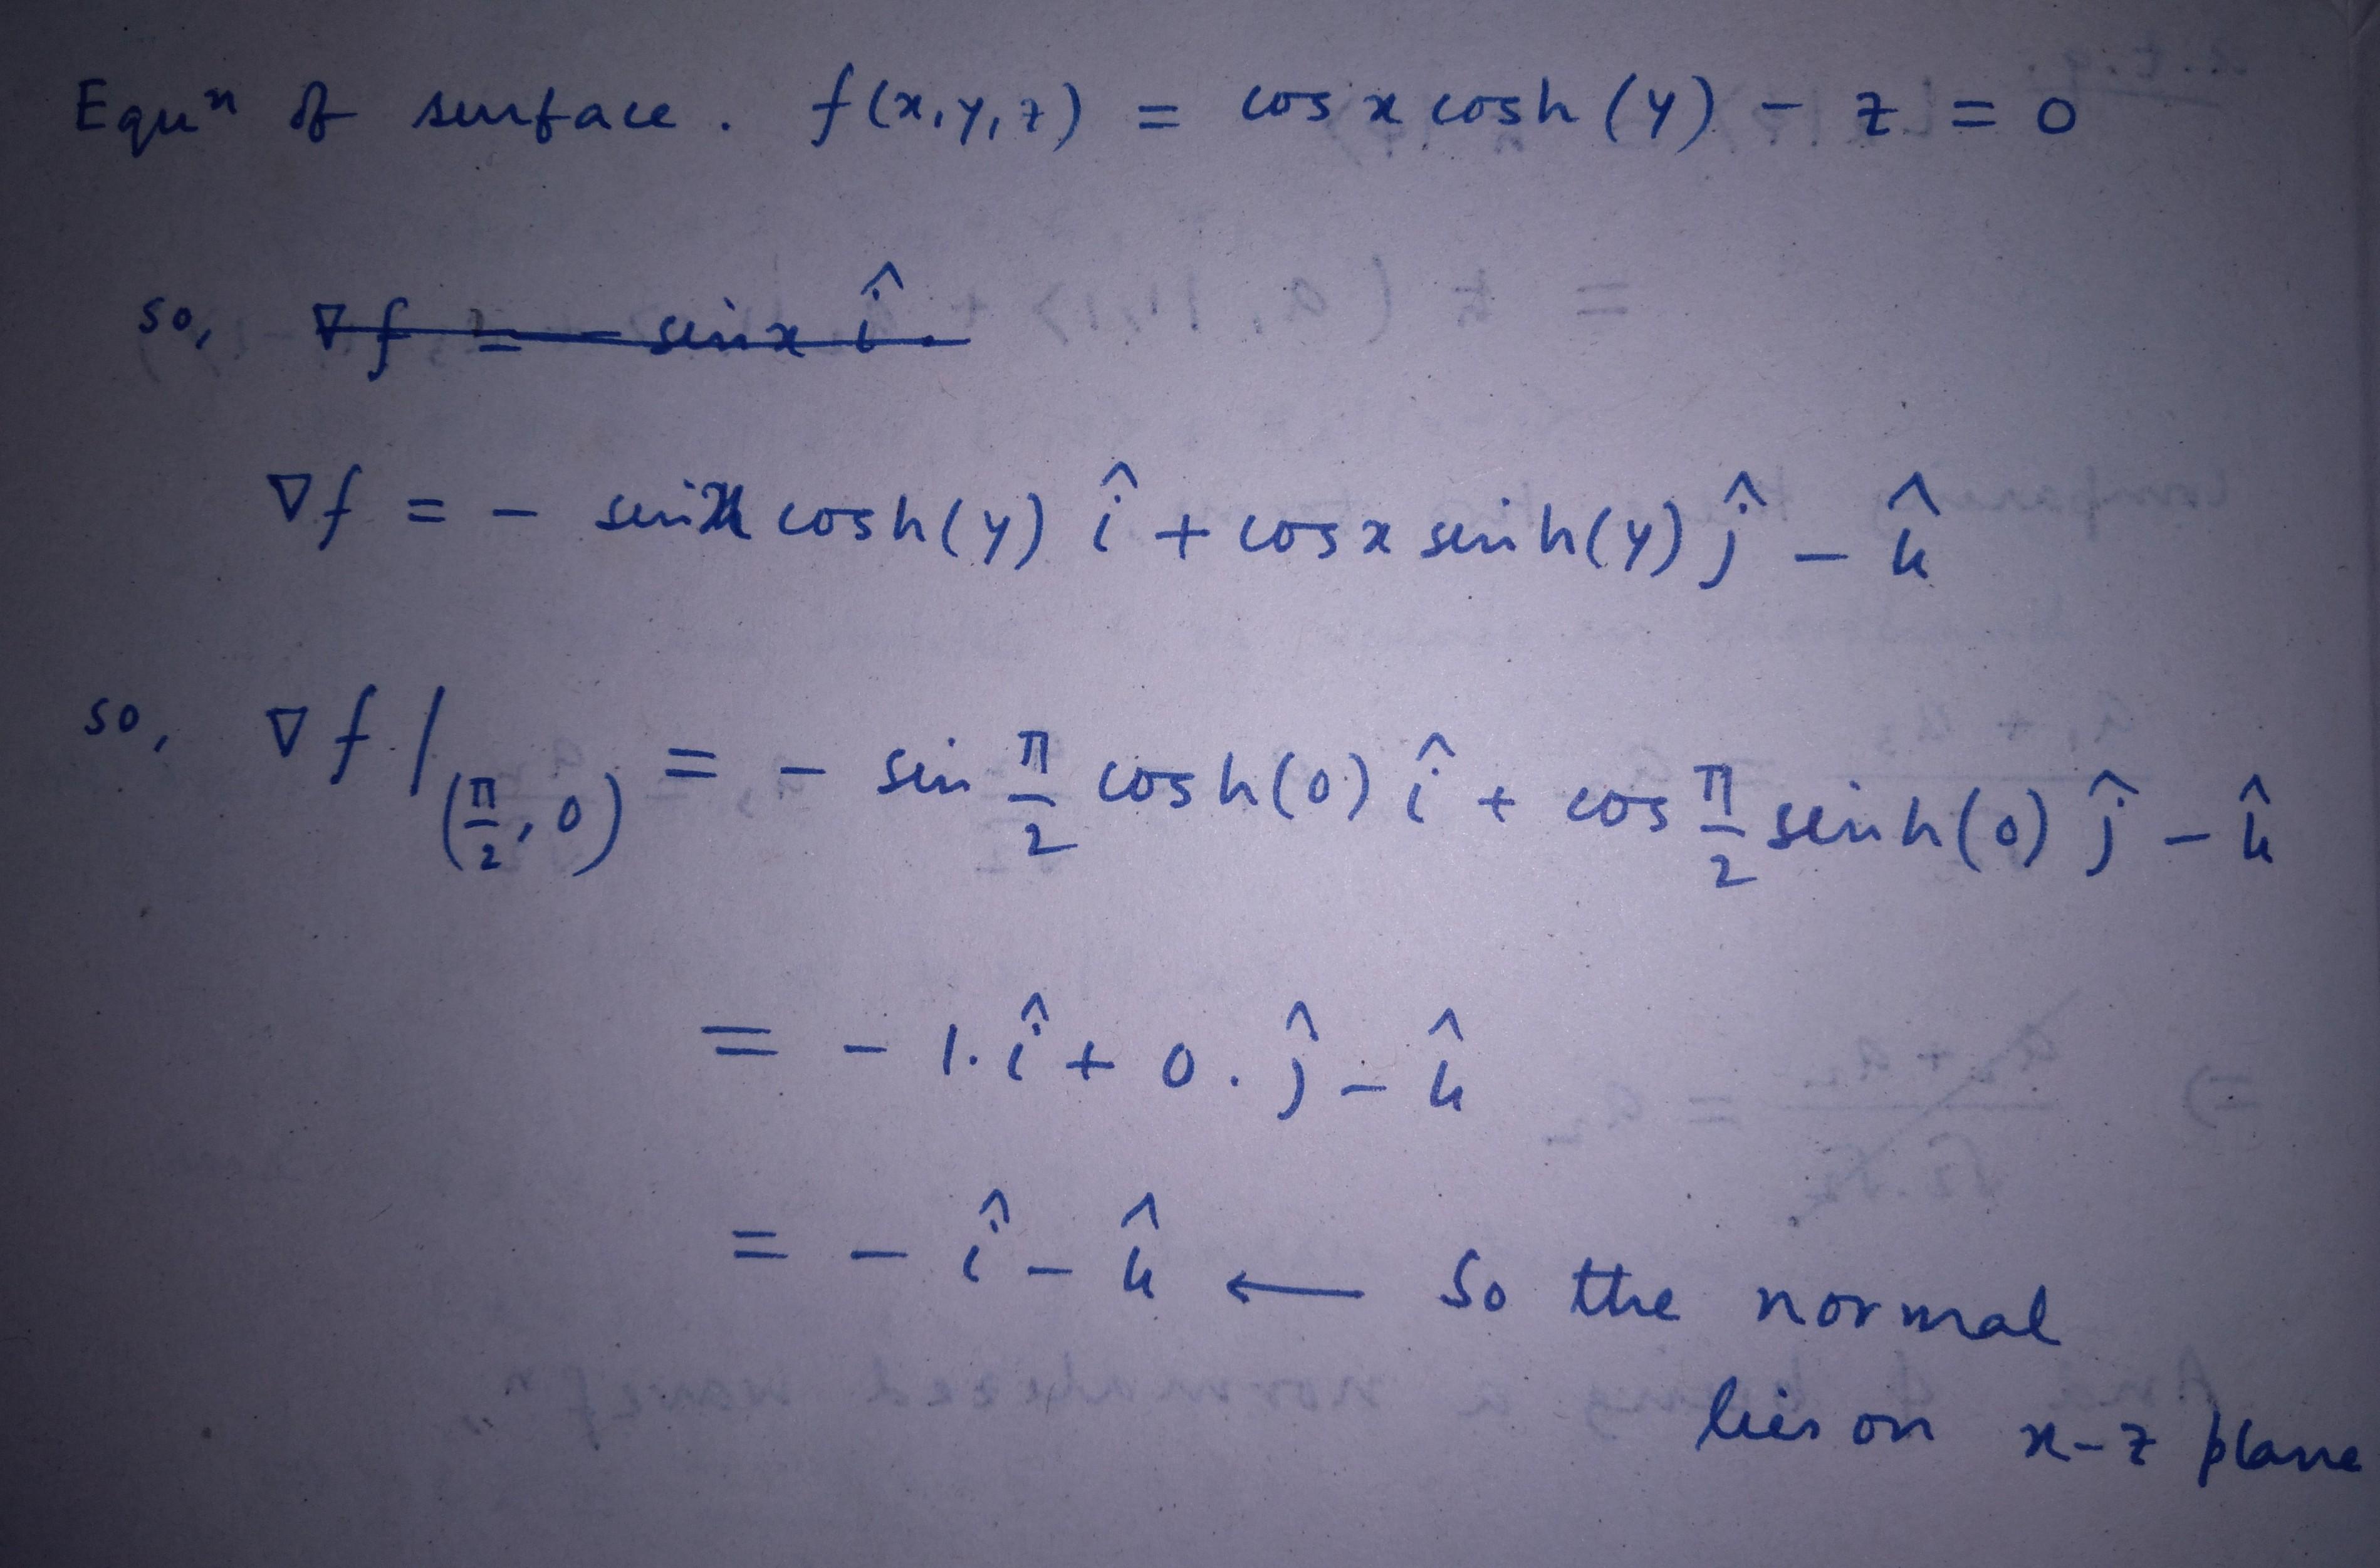 Equⁿ of surface. f(x,y,z) = cos x cosh(y) - z = 0
so, ∇f = - sin x î.
∇f = - sin x cosh(y) î + cos x sinh(y) ĵ - k̂
so, ∇f |(π/2, 0) = - sin π/2 cosh(0) î + cos π/2 sinh(0) ĵ - k̂
= - 1. î + 0. ĵ - k̂
= - î - k̂ ← So the normal
lies on x-z plane